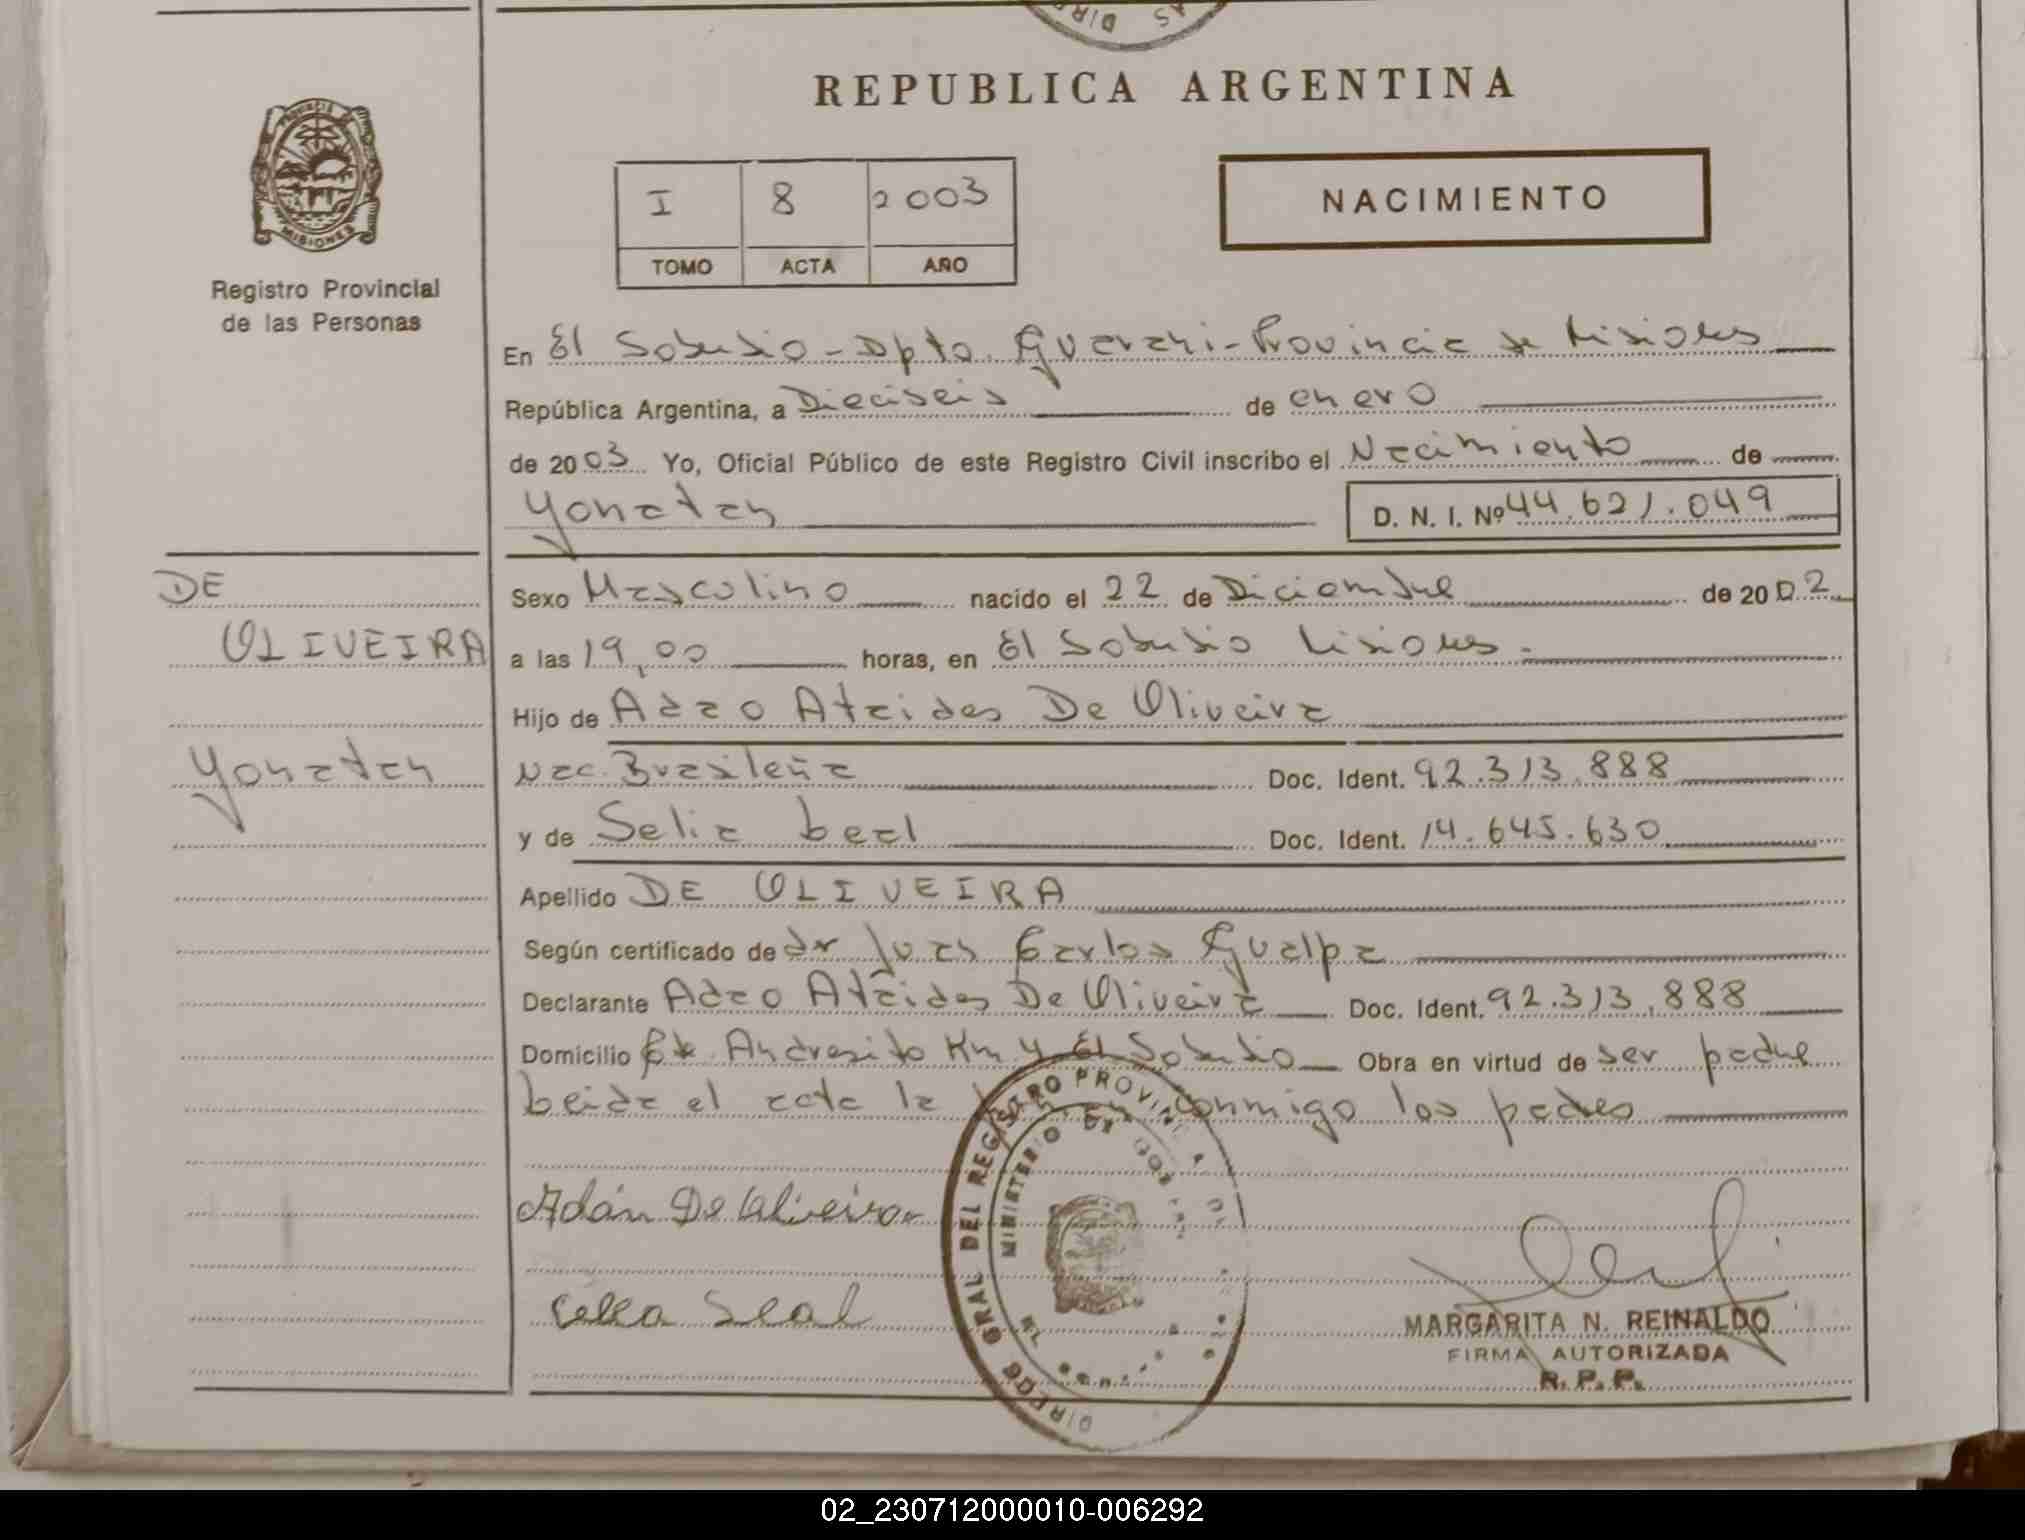 REPUBLICA ARGENTINA
PROVINCIA
MISIONES
Registro Provincial
de las Personas
I 8 2003
TOMO ACTA AÑO
NACIMIENTO
En El Soberbio - Dpto. Guarani - Provincia de Misiones
República Argentina, a Dieciseis de enero
de 2003 Yo, Oficial Público de este Registro Civil inscribo el Nacimiento de
Yonatan D. N. I. Nº 44.621.049
DE
OLIVEIRA
Yonatan
Sexo Masculino nacido el 22 de Diciembre de 2002
a las 19,00 horas, en El Soberbio Misiones.
Hijo de Adao Ataides De Oliveira
Nac. Brasileña Doc. Ident. 92.313.888
y de Selia Leal Doc. Ident. 14.645.630
Apellido DE OLIVEIRA
Según certificado de dr Juan Carlos Gualpa
Declarante Adao Ataides De Oliveira Doc. Ident. 92.313.888
Domicilio Andresito Km 4 El Soberbio Obra en virtud de ser padre
Leida el acta la conmigo los padres
Adán De Oliveira
Celia Leal
DIREC GRAL DEL REGISTRO PROVINCIAL
MINISTERIO DE
MARGARITA N. REINALDO
FIRMA AUTORIZADA
R. P. P.
02_230712000010-006292